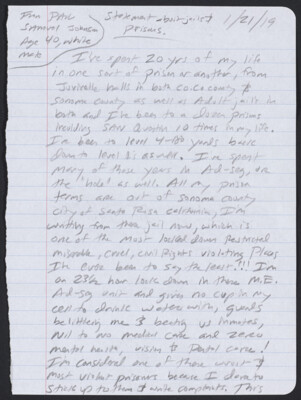 Samuel Johnson
Age 40, White
male
Statement about jails &
Prisons.
1/21/19
I've spent 20 yrs of my life
in one sort of prison or another, from
Juvenile halls in both co.co county &
Sonoma county as well as Adult jails in
both and I've been to a dozen prisons
including San Quentin 10 times in my life.
I've been to level 4-180 yards back
down to level as well. I've spent
many of those years in Ad-seg, or
the "hole" as well. All my prison
terms are out of Sonoma county
city of Santa Rosa California, I'm
writing from there jail now, which is
one of the most locked down
miserable, cruel, civil Rights violating Places
I've ever been to say the least!! I'm
on 23½ hour lock down in there
Ad-seg unit and given no cup in my
cell to drink water with, guards
belittleing me & beating up inmates,
Nil to no medical care and zero
mental health, vision & Dental care!
I'm considered one of there worst &
most violent prisoners because I dare to
stick up to them & write complaints. This